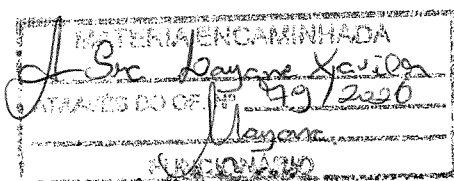 MATÉRIA ENCAMINHADA
A Sra Dayane Xavier
ATRAVÉS DO OF. Nº 79/2020
FUNCIONÁRIO